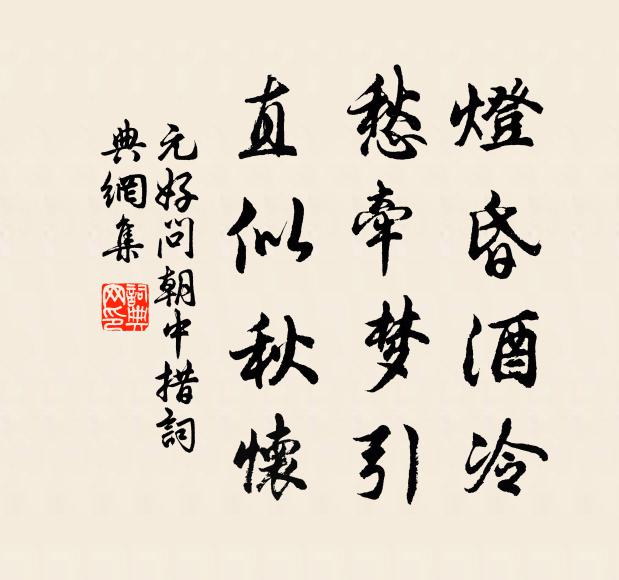 燈昏酒冷
愁牽梦引
直似秋懷
元好问朝中措詞
典網集
詞典
网印